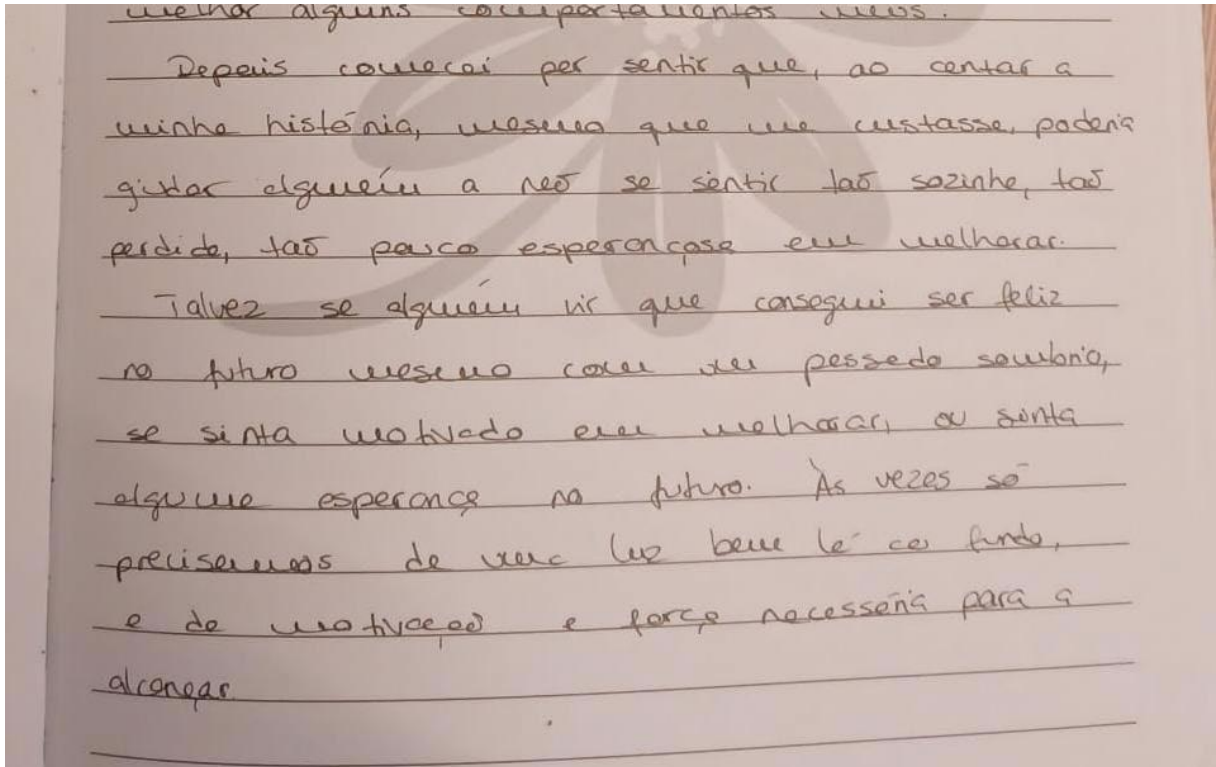 melhor alguns comportamentos meus.
Depois comecei por sentir que, ao contar a
minha história, mesmo que me custasse, poderia
ajudar alguém a não se sentir tão sozinho, tão
perdido, tão pouco esperançoso em melhorar.
Talvez se alguém vir que consegui ser feliz
no futuro mesmo com um passado sombrio,
se sinta motivado em melhorar, ou sinta
alguma esperança no futuro. Às vezes só
precisamos de uma luz bem lá ao fundo,
e de motivação e força necessária para a
alcançar